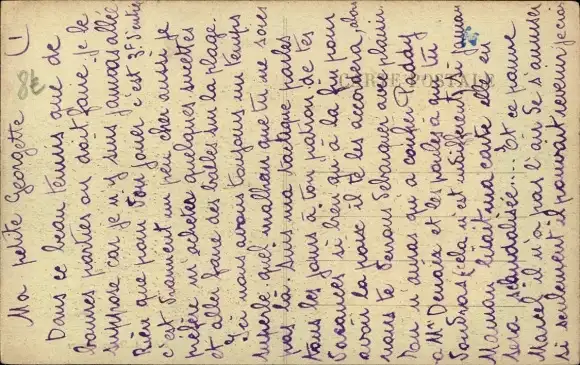 Ma petite Georgette (1
Dans ce beau tennis que de
bonnes parties on doit faire. je le
suppose car je n'y suis jamais allée
Rien que pour y jouer c'est 3F l'entrée
c'est vraiment un peu cher aussi je
préfère m'acheter quelques sucettes
et aller faire des balles sur la plage.
Ici nous avons toujours un temps
superbe. quel malheur que tu ne sois
pas là. Suis ma tactique parles
tous les jours à ton patron de tes
vacances si bien qu'à la fin pour
avoir la paix il te les accordera, alors
nous te verrons débarquer avec plaisir.
Tu n'auras qu'à confier Paddy
à Mr et les poules à qui tu
voudras (cela m'est indifférent) si jamais
Maman lisait ma carte elle en
sera scandalisée... Et ce pauvre
Marcel il n'a pas l'air de s'amuser
si seulement il pouvait revenir ici
CARTE POSTALE
8t